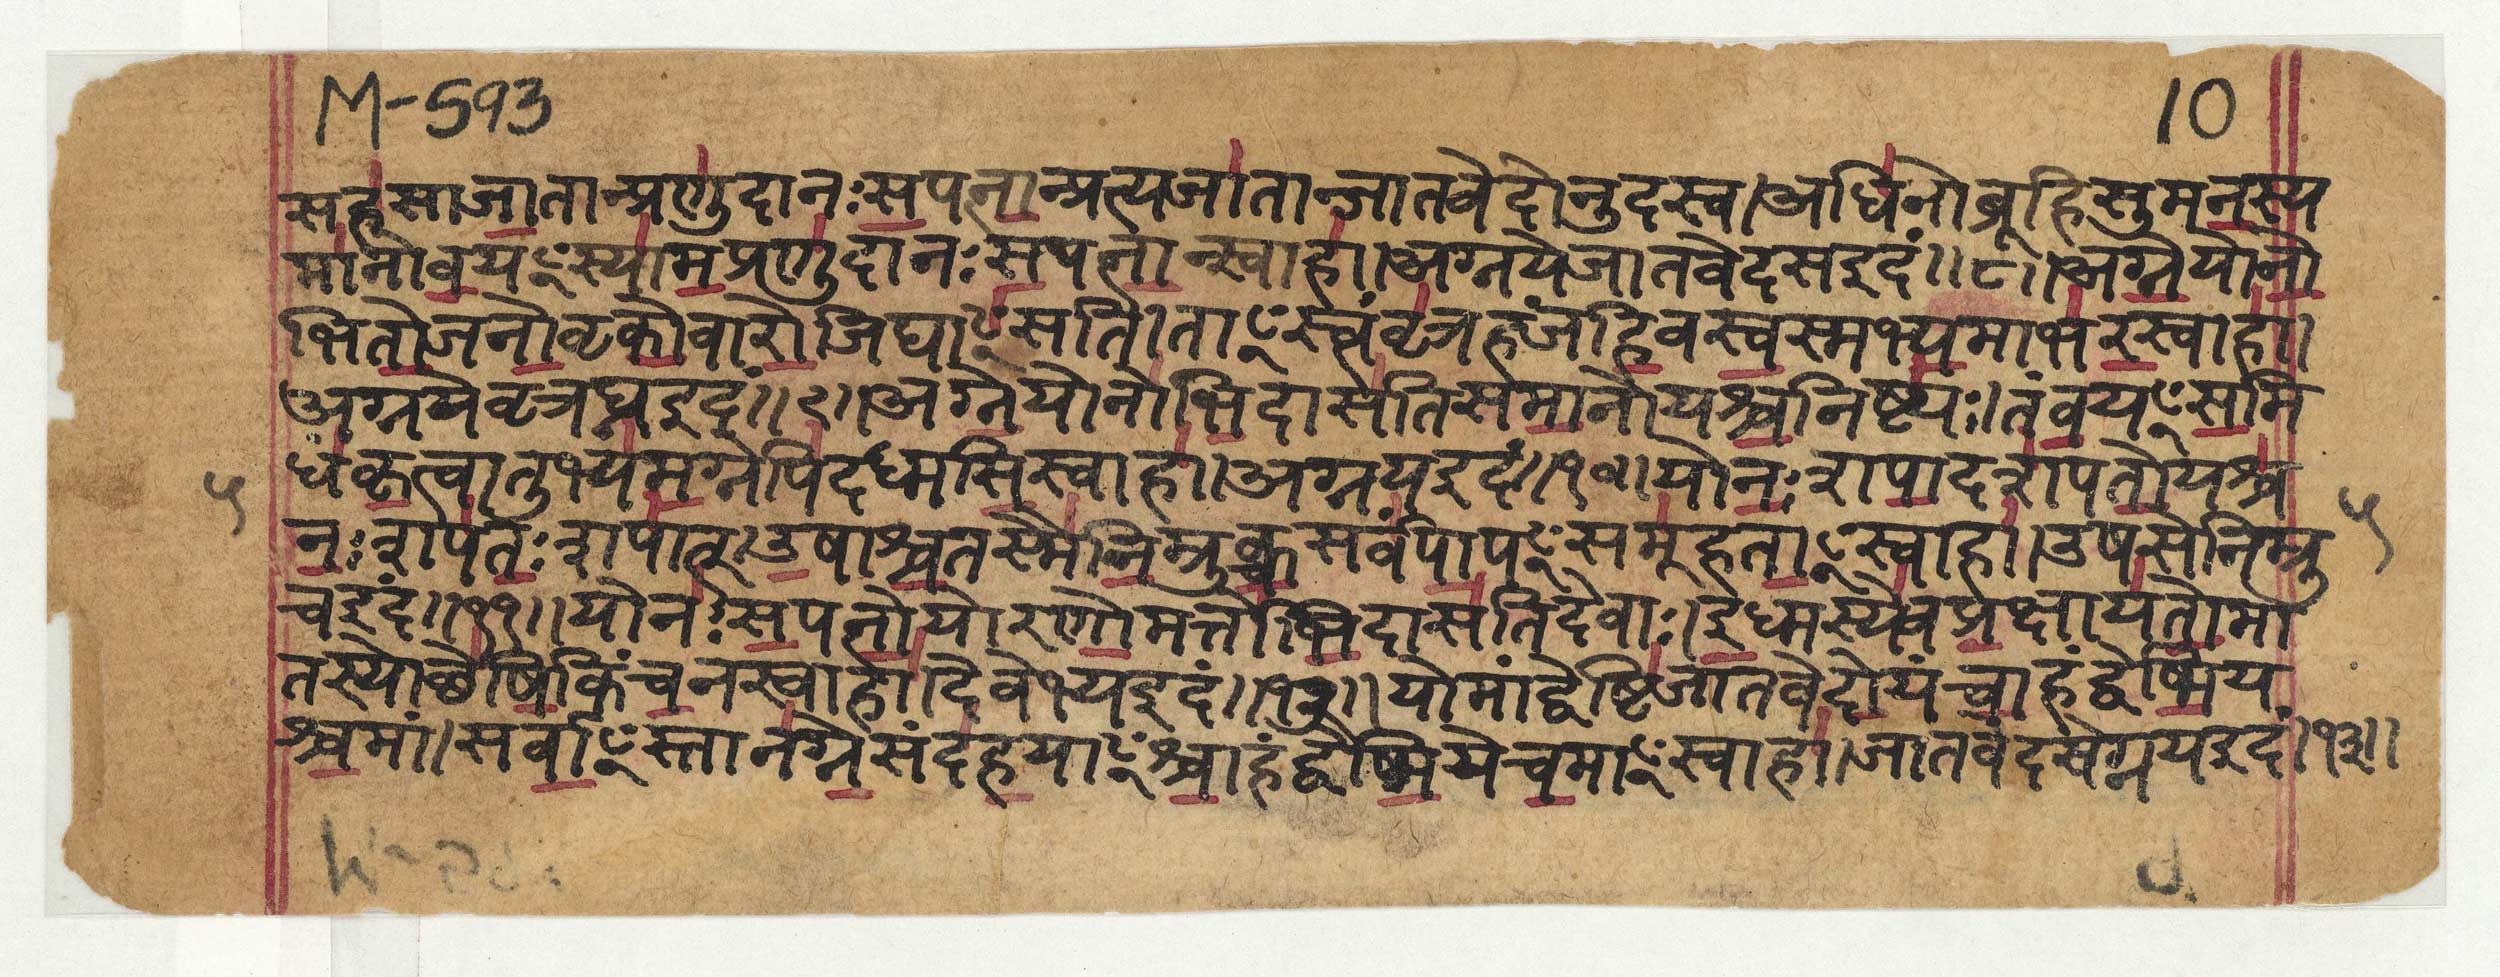 M-593
10
सहसाजातान्प्रणुदानःसपत्नान्प्रत्यजातान्जातवेदोनुदस्व।अधिनोब्रूहिसुमनस्य
मानोवयꣳस्यामप्रणुदानःसपत्नान्स्वाहा।अग्नयेजातवेदसइदं॥८॥अग्नेयोनो
भितोजनोवृकोवारोजिघाꣳसति।ताꣳस्त्वंवृत्रहञ्जहिवस्वस्मभ्यमाभरस्वाहा।
अग्नयेवृत्रघ्नइदं॥९॥अग्नेयोनोभिदासतिसमानोयश्चनिष्ट्यः।तंवयꣳसमि
धंकृत्वातुभ्यमग्नेपिदध्मसिस्वाहा।अग्नयइदं॥१०॥योनःशपादशपतोयश्च
५
५
नःशपतःशपात्।उषाश्चतस्मैनिम्रुक्चसर्वंपापꣳसमूहताꣳस्वाहा।उषसेनिम्रु
चइदं॥११॥योनःसपत्नोयोरणोमर्त्तोभिदासतिदेवाः।इध्मस्येवप्रक्षायतोमा
तस्योच्छेषिकिंचनस्वाहा।देवेभ्यइदं॥१२॥योमांद्वेष्टिजातवेदोयंचाहंद्वेष्मिय
श्चमां।सर्वाꣳस्तानग्नेसंदहयाꣳश्चाहंद्वेष्मियेचमाꣳस्वाहा।जातवेदसेग्नयइदं।१३॥